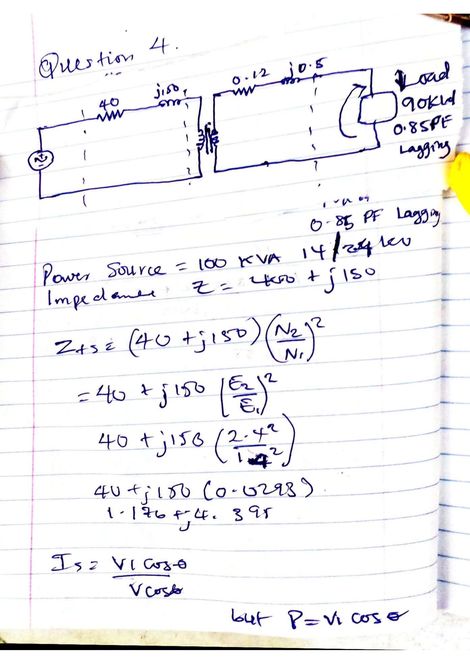 Question 4.
40
j150
0.12
j0.5
Load
90KW
0.85PF
Lagging
0.85 PF Lagging
Power Source = 100 KVA 14/2.4 kV
Impedance Z = 40 + j150
Zts = (40 + j150) (N2/N1)²
= 40 + j150 (E2/E1)²
40 + j150 (2.4²/14²)
40 + j150 (0.0293)
1.176 + j4.395
Is = VI cosθ / V cosθ
but P = VI cos θ